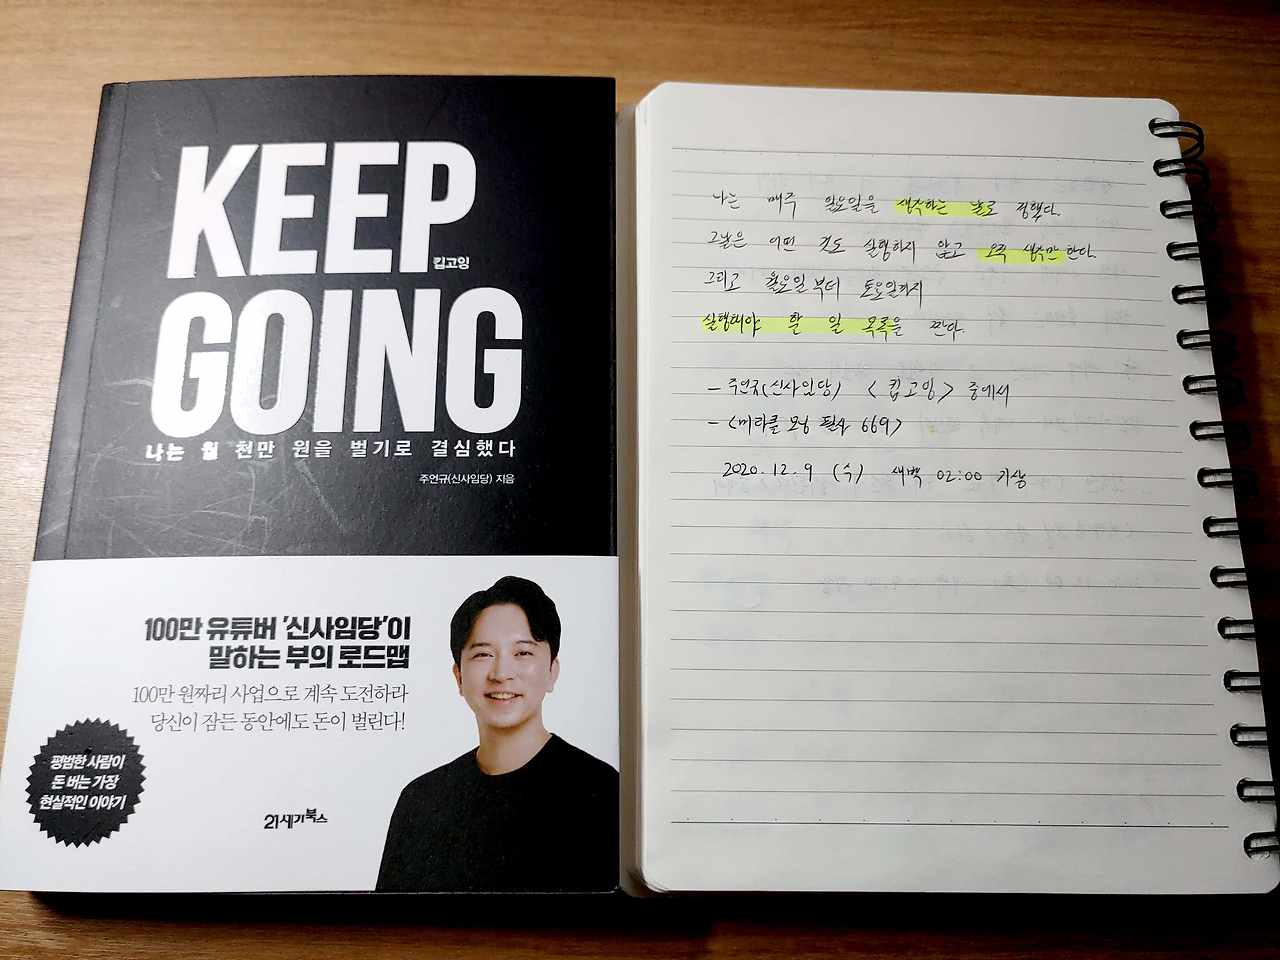 KEEP
킵고잉
GOING
나는 월 천만 원을 벌기로 결심했다
주언규(신사임당) 지음
100만 유튜버 '신사임당'이
말하는 부의 로드맵
100만 원짜리 사업으로 계속 도전하라
당신이 잠든 동안에도 돈이 벌린다!
평범한 사람이
돈 버는 가장
현실적인 이야기
21세기북스
나는 매주 일요일을 생각하는 날로 정했다.
그날은 어떤 것도 실행하지 않고 오직 생각만 한다.
그리고 월요일부터 토요일까지
실행해야 할 일 목록을 짠다.
- 주언규(신사임당) <킵고잉> 중에서
- <미라클 모닝 필사 669>
2020. 12. 9 (수) 새벽 02:00 기상